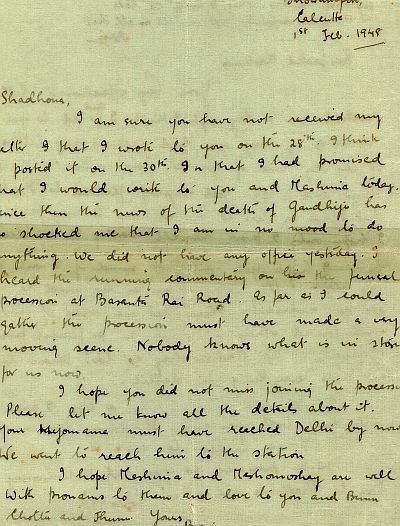 Calcutta
1st Feb. 1948
Shadhona,
I am sure you have not received my
letter I that I wrote to you on the 28th. I think
posted it on the 30th. In that I had promised
that I would write to you and Mashima today.
since then the news of the death of Gandhiji has
so shocked me that I am in no mood to do
anything. We did not have any office yesterday. I
heard the running commentary on his the funeral
procession at Basanta Rai Road. As far as I could
gather the procession must have made a very
moving scene. Nobody knows what is in store
for us now.
I hope you did not miss joining the processi
Please let me know all the details about it.
Your must have reached Delhi by now
We went to reach him to the station
I hope Mashima and Meshomoshay are well
With pronams to them and love to you and
Chottu and Yours